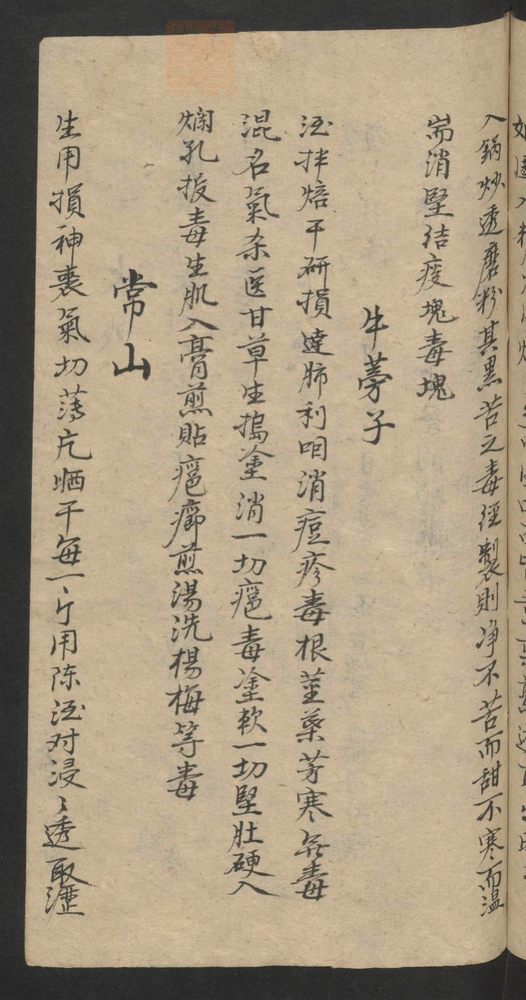 入鍋炒透磨粉其黑苦之毒經製則净不苦而甜不寒而溫
耑消堅结痰塊毒塊
牛蒡子
酒拌焙干研損達肺利咽消痘疹毒根莖葉芳寒無毒
混名氣杀医甘草生搗塗消一切瘡毒塗軟一切堅肚硬入
爛孔拔毒生肌入膏煎貼瘡癤煎湯洗楊梅等毒
常山
生用損神衰氣切薄片晒干每一斤用陈酒对浸〻透取瀝